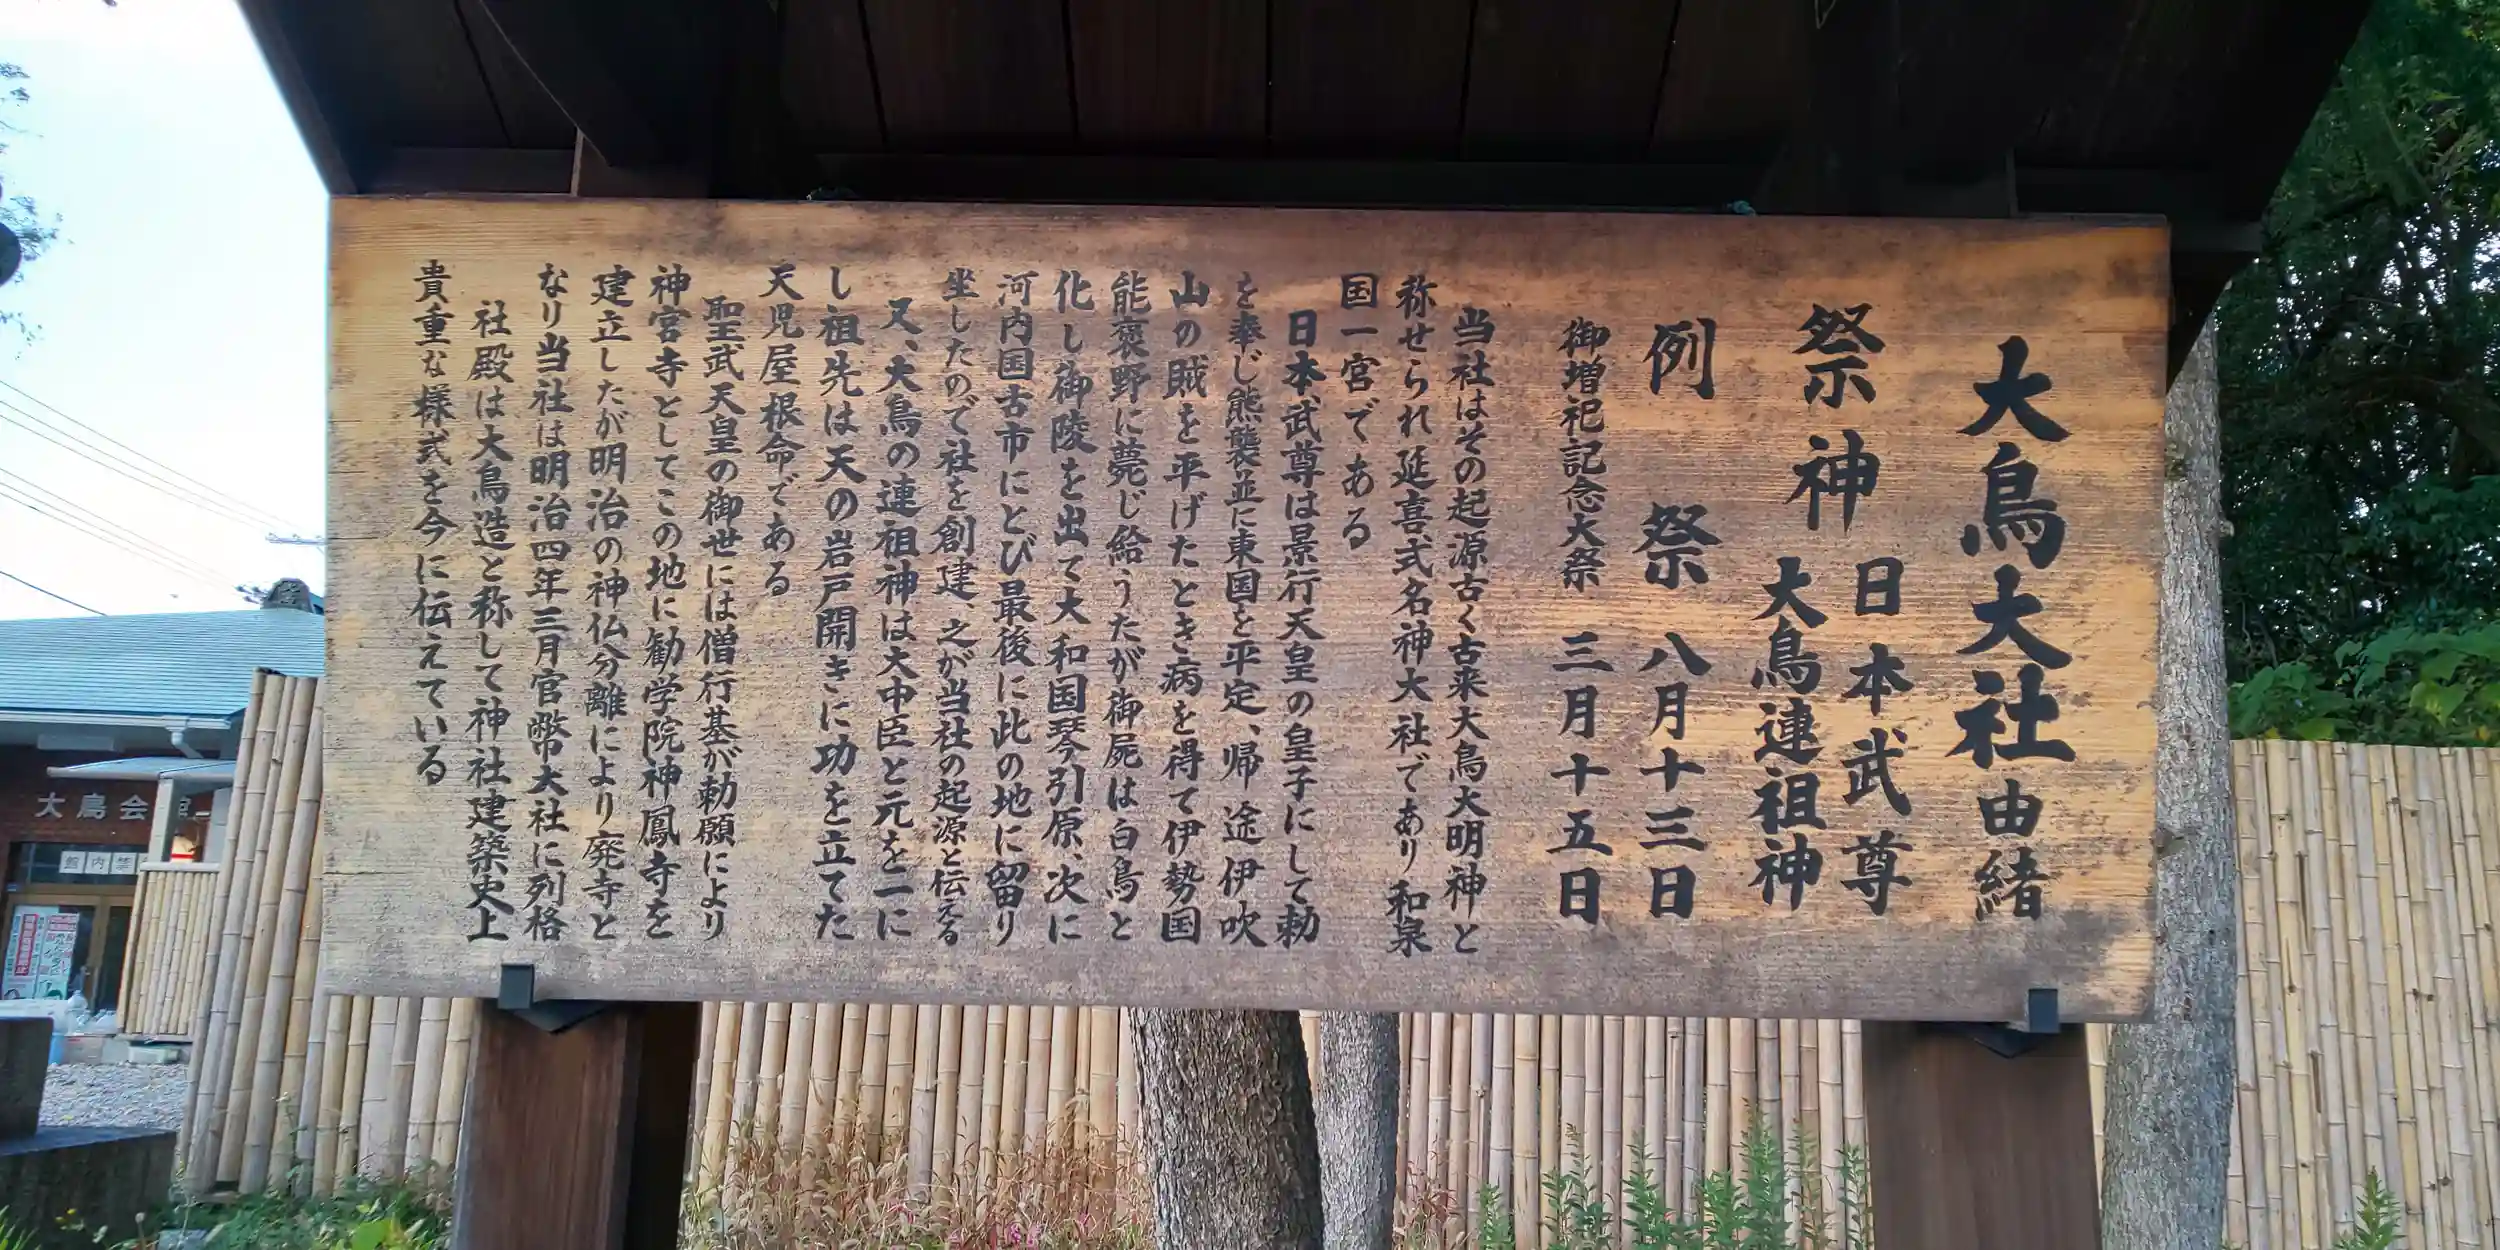 大鳥大社由緒
祭神 日本武尊
大鳥連祖神
例祭 八月十三日
御増祀記念大祭 三月十五日
当社はその起源古く古来大鳥大明神と
称せられ延喜式名神大社であり和泉
国一宮である
日本武尊は景行天皇の皇子にして勅
を奉じ熊襲並に東国を平定、帰途伊吹
山の賊を平げたとき病を得て伊勢国
能褒野に薨じ給うたが御屍は白鳥と
化し御陵を出て大和国琴引原、次に
河内国古市にとび最後に此の地に留り
坐したので社を創建、之が当社の起源と伝える
又、大鳥の連祖神は大中臣と元を一に
し祖先は天の岩戸開きに功を立てた
天児屋根命である
聖武天皇の御世には僧行基が勅願により
神宮寺としてこの地に勧学院神鳳寺を
建立したが明治の神仏分離により廃寺と
なり当社は明治四年三月官幣大社に列格
社殿は大鳥造と称して神社建築史上
貴重な様式を今に伝えている
大鳥会館
館内禁